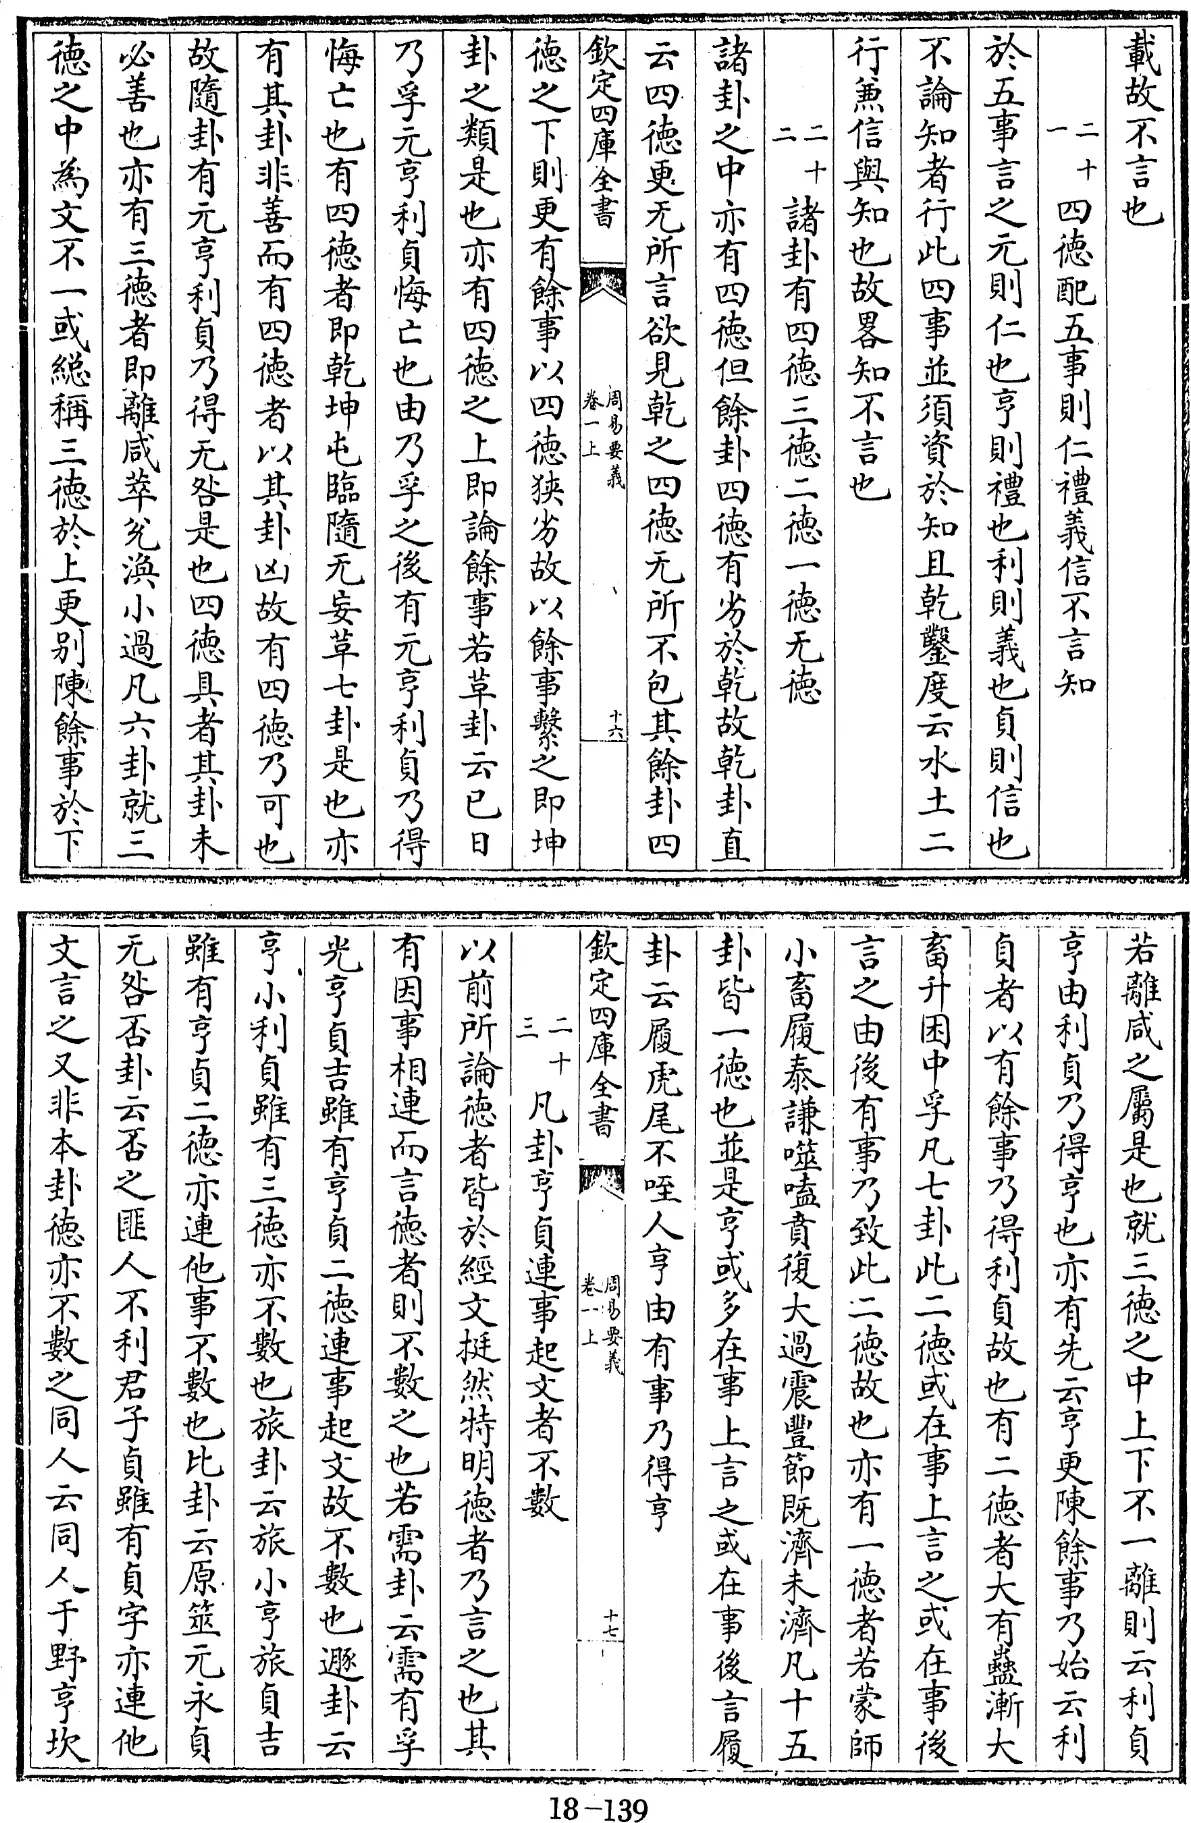 載故不言也
二十一 四德配五事則仁禮義信不言知
於五事言之元則仁也亨則禮也利則義也貞則信也
不論知者行此四事並須資於知且乾鑿度云水土二
行兼信與知也故畧知不言也
二十二 諸卦有四德三德二德一德无德
諸卦之中亦有四德但餘卦四德有劣於乾故乾卦直
云四德更无所言欲見乾之四德无所不包其餘卦四
欽定四庫全書
周易要義
卷一上
十六
德之下則更有餘事以四德狹劣故以餘事繫之即坤
卦之類是也亦有四德之上即論餘事若革卦云已日
乃孚元亨利貞悔亡也由乃孚之後有元亨利貞乃得
悔亡也有四德者即乾坤屯臨隨无妄革七卦是也亦
有其卦非善而有四德者以其卦凶故有四德乃可也
故隨卦有元亨利貞乃得无咎是也四德具者其卦未
必善也亦有三德者即離咸萃兌渙小過凡六卦就三
德之中為文不一或總稱三德於上更别陳餘事於下
若離咸之屬是也就三德之中上下不一離則云利貞
亨由利貞乃得亨也亦有先云亨更陳餘事乃始云利
貞者以有餘事乃得利貞故也有二德者大有蠱漸大
畜升困中孚凡七卦此二德或在事上言之或在事後
言之由後有事乃致此二德故也亦有一德者若蒙師
小畜履泰謙噬嗑賁復大過震豐節既濟未濟凡十五
卦皆一德也並是亨或多在事上言之或在事後言履
卦云履虎尾不咥人亨由有事乃得亨
欽定四庫全書
周易要義
卷一上
十七
二十三 凡卦亨貞連事起文者不數
以前所論德者皆於經文挺然特明德者乃言之也其
有因事相連而言德者則不數之也若需卦云需有孚
光亨貞吉雖有亨貞二德連事起文故不數也遯卦云
亨小利貞雖有三德亦不數也旅卦云旅小亨旅貞吉
雖有亨貞二德亦連他事不數也比卦云原筮元永貞
无咎否卦云否之匪人不利君子貞雖有貞字亦連他
文言之又非本卦德亦不數之同人云同人于野亨坎
18-139